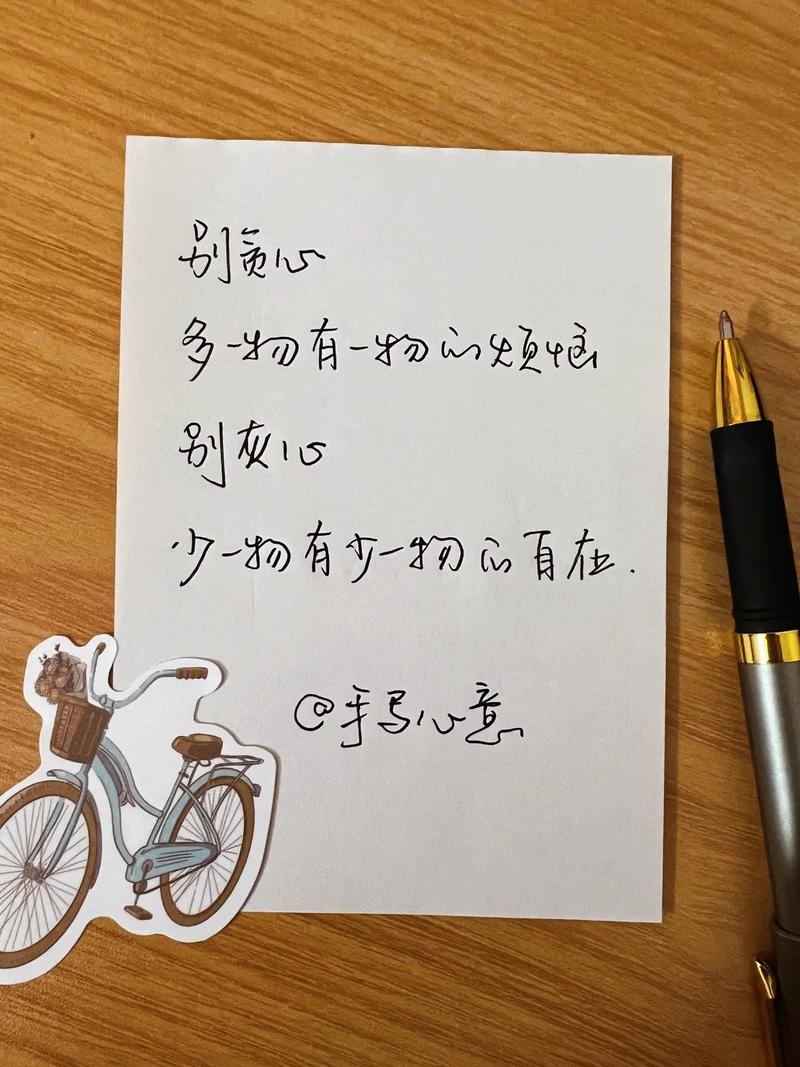 别贪心
多一物有一物的烦恼
别灰心
少一物有少一物的自在.
@手写心意